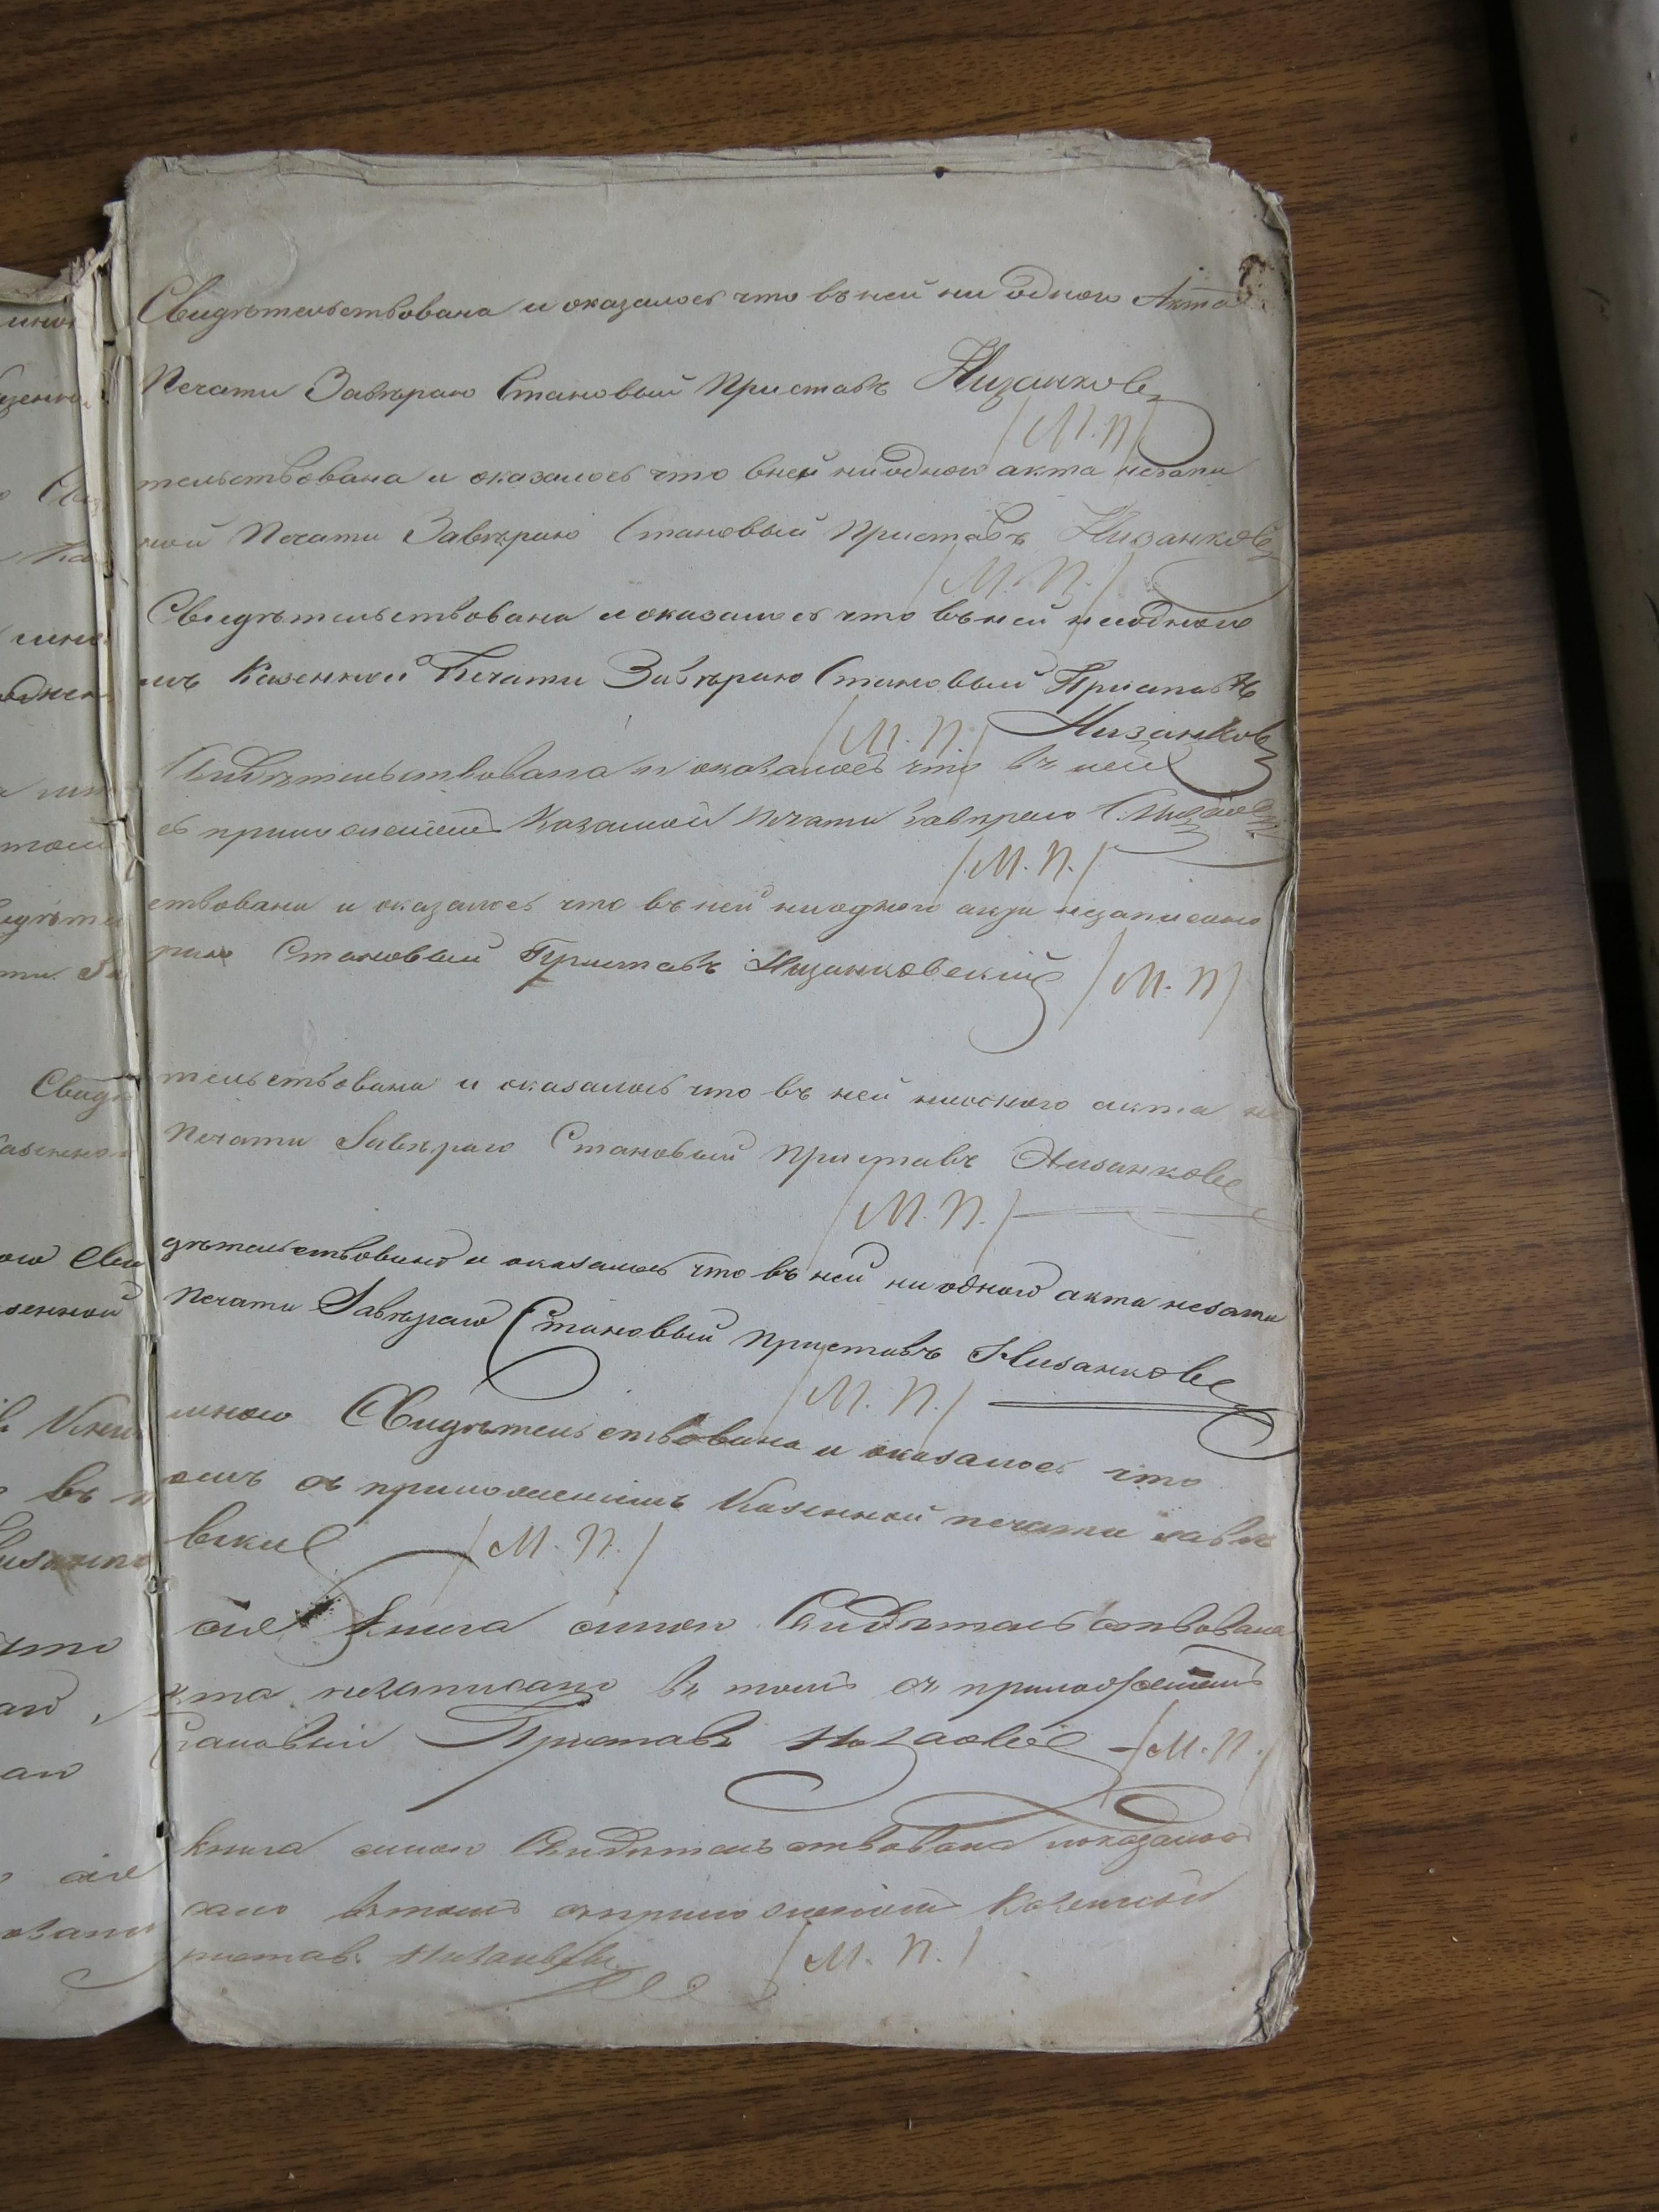 Свидѣтельствована и оказалось что въ ней ни одного Акта
Печати Завѣряю Становый Приставъ Низанков
/М.П/
тельствована и оказалось что вней ниодного акта незапи
ной Печати Завѣряю Становый Приставъ Низанков
/М.П./
Свидѣтельствована и оказалось что въ ней ниодного
мъ Казенной Печати Завѣряю Становый Приставъ
Низанков
/М.П./
Свидѣтельствована и оказалось что въ ней
съ приложениемъ Казенной Печати Завѣряю
/М.П./
ствована и оказалось что въ ней ниодного акта незаписано
ряю Становый Приставъ Низанковский /М.П/
тельствована и оказалось что въ ней ниодного акта не
Печати Завѣряю Становый Приставъ Низанковс
/М.П./
дѣтельствована и оказалось что въ ней ни одного акта незапи
Печати Завѣряю Становый Приставъ Низанковс
/М.П./
мною Свидѣтельствована и оказалось что
омъ съ приложениемъ Казенной печати завѣ
вский /М.П./
сія книга мною Свидѣтельствована
кта незаписано въ томъ съ приложениемъ
тановый Приставъ /М.П./
книга мною Свидѣтельствована иоказалось
сано втомъ съприложениемъ Казенной
риставъ /М.П./